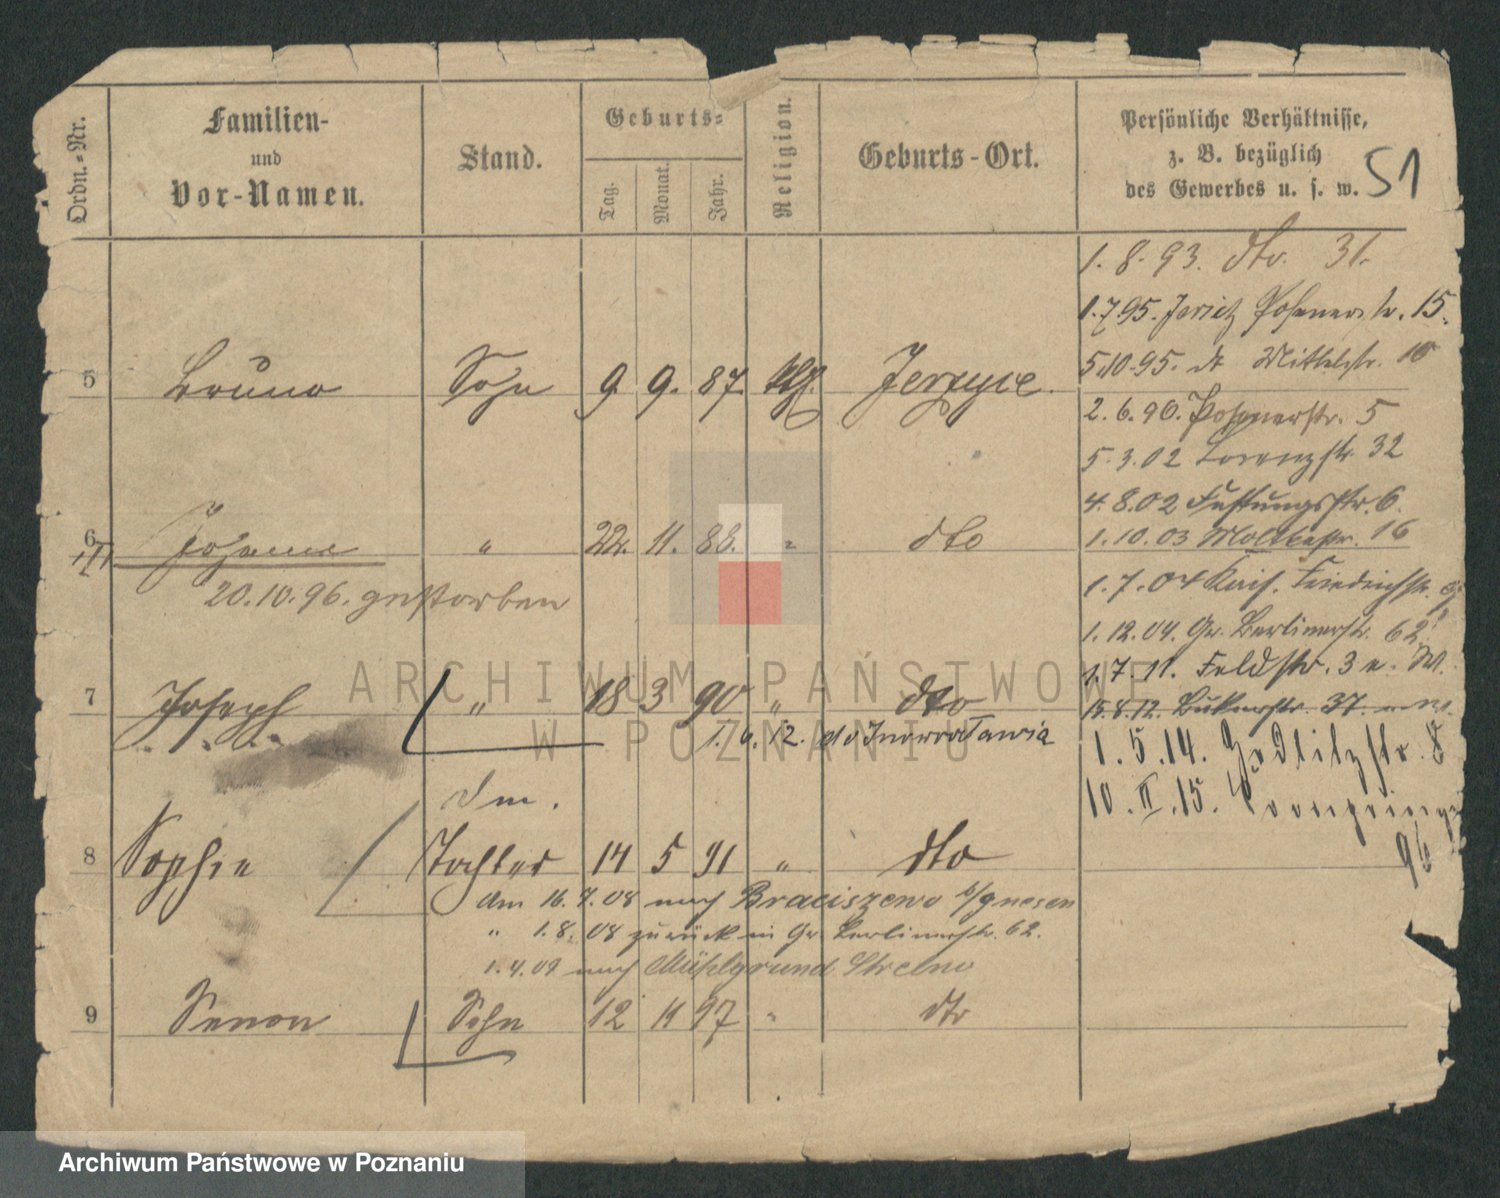 Ordn.-Nr.
Familien-
und
Vor-Namen.
Stand.
Geburts-
Tag.
Monat.
Jahr.
Religion.
Geburts-Ort.
Persönliche Verhältnisse,
z. B. bezüglich
des Gewerbes u. s. w.
51
1. 8. 93. dto. 31.
1. 7 95. Jersitz Posenerstr. 15.
5.10.95. dt Mittelstr. 10
5 Bruno Sohn 9. 9. 87. kth. Jerzyce.
2. 6. 96. Posenerstr. 5
5. 3. 02 Lorenzstr. 32
4. 8. 02 Festungsstr. 6.
6 " 22. 11. 88. " dto
1. 10. 03 Moltkestr. 16
20.10.96. gestorben
1. 7. 04 Kais. Friedrichstr.
1. 12. 04. Gr. Berlinerstr. 62
1. 7. 11. Feldstr. 3
7 Joseph " 18 3 90 " dto
15.8.12. Bukerstr. 37.
1. 6. 12. do Inowrocławia
1. 5. 14. 8
10. II. 15.
96
8 Sophie Tochter 14 5 91 " dto
Am 16. 7. 08 nach Braciszewo b/Gnesen
" 1. 8. 08 zurück in Gr. Berlinerstr. 62.
1. 4. 09 nach Mühlgrund Strelno
9 Zenon Sohn 12 11 97 " dto
ARCHIWUM PAŃSTWOWE
W POZNANIU
Archiwum Państwowe w Poznaniu